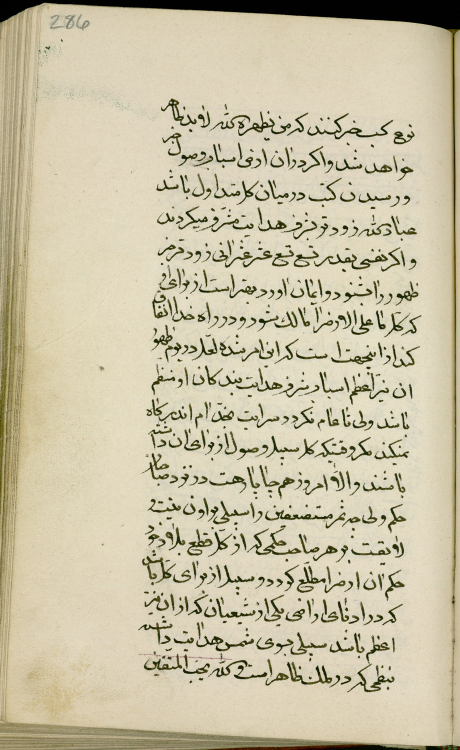 286
نوع کتب خبر کنند که من یظهره الله لابد ظاهر
خواهد شد و اگر در آن ارض اسباب وصول خبر
و رسیدن کتب در میان کل متداول باشد
عباد الله زودتر بشرف هدایت مشرف میگردند
و اگر نفسی بقدر تسع تسع عشر عشر آنی زودتر خبر
ظهور را بشنود و ایمان آورد بهتر است از برای او
که کل ما علی الارض را مالک شود و در راه خدا انفاق
کند از اینجهت است که این امر شده لعل در یوم ظهور
آن نیر اعظم اسباب شرف هدایت بندگان او منظم
باشد ولی تا عام نگردد سرایت بمقدام اندرگاه
نمیکند مگر وقتیکه کل سبیل وصول از برای آن داشته
باشند و الا امروز هم چاپار هست در نزد صاحبان
حکم ولی چه ثمر مستضعفین را سبیلی بر آن نیست و
لایق است بر هر صاحب حکمی که از کل قطع بلاد خود
حکم آن ارض مطلع گردد و سبیل از برای کل باشد
که در ادنای اراضی یکی از شیعیان که از آن نیر
اعظم باشد سبیلی بسوی شمس هدایت داشته
بنظمی که در ملک ظاهر است و الله یحب المتقین